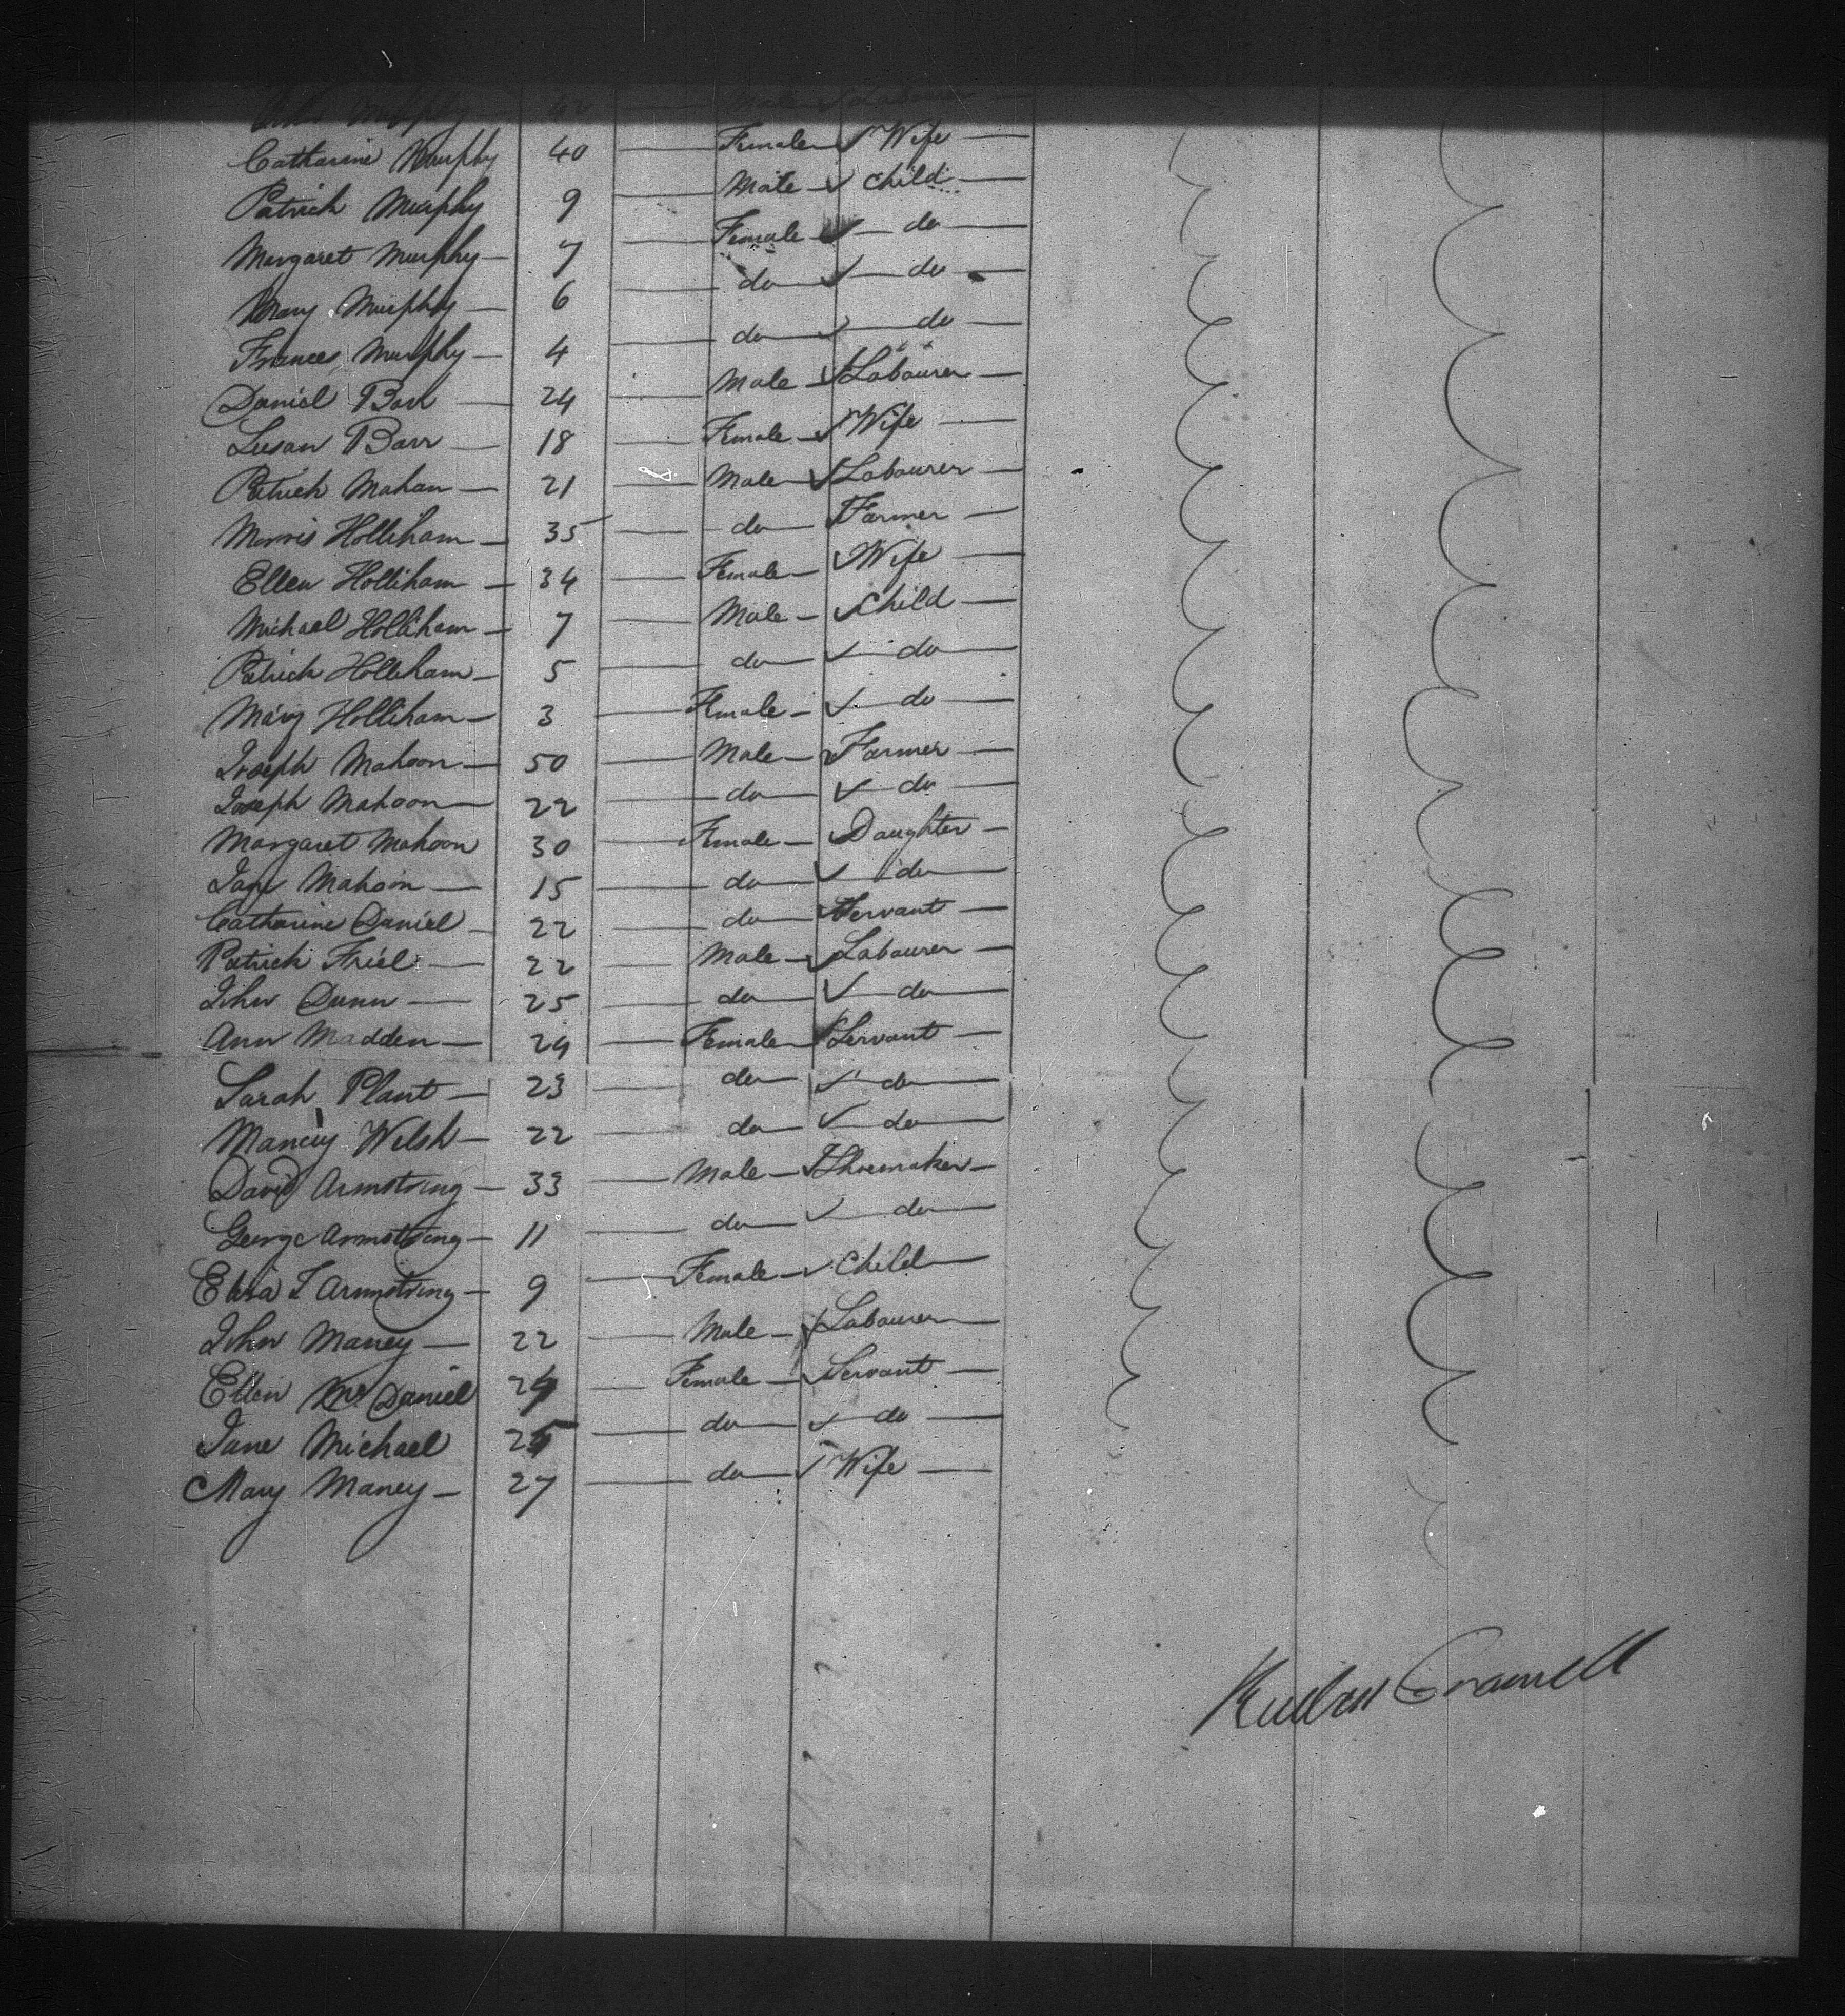 Murphy 42 Male Labourer
Catharine Murphy 40 Female Wife
Patrick Murphy 9 Male Child
Margaret Murphy 7 Female do
Mary Murphy 6 do do
Frances Murphy 4 do do
Daniel Barr 24 Male Labourer
Susan Barr 18 Female Wife
Patrick Mahan 21 Male Labourer
Morris Holliham 35 do Farmer
Ellen Holliham 34 Female Wife
Michael Holliham 7 Male Child
Patrick Holliham 5 do do
Mary Holliham 3 Female do
Joseph Mahoon 50 Male Farmer
Joseph Mahoon 22 do do
Margaret Mahoon 30 Female Daughter
Jane Mahoon 15 do do
Catharine Daniel 22 do Servant
Patrick Friel 22 Male Labourer
John Dunn 25 do do
Ann Madden 24 Female Servant
Sarah Plant 23 do do
Welsh 22 do do
David Armstrong 33 Male Shoemaker
George Armstrong 11 do do
Eliza J Armstrong 9 Female Child
John Maney 22 Male Labourer
Ellen McDaniel 24 Female Servant
Jane Michael 25 do do
Mary Maney 27 do Wife